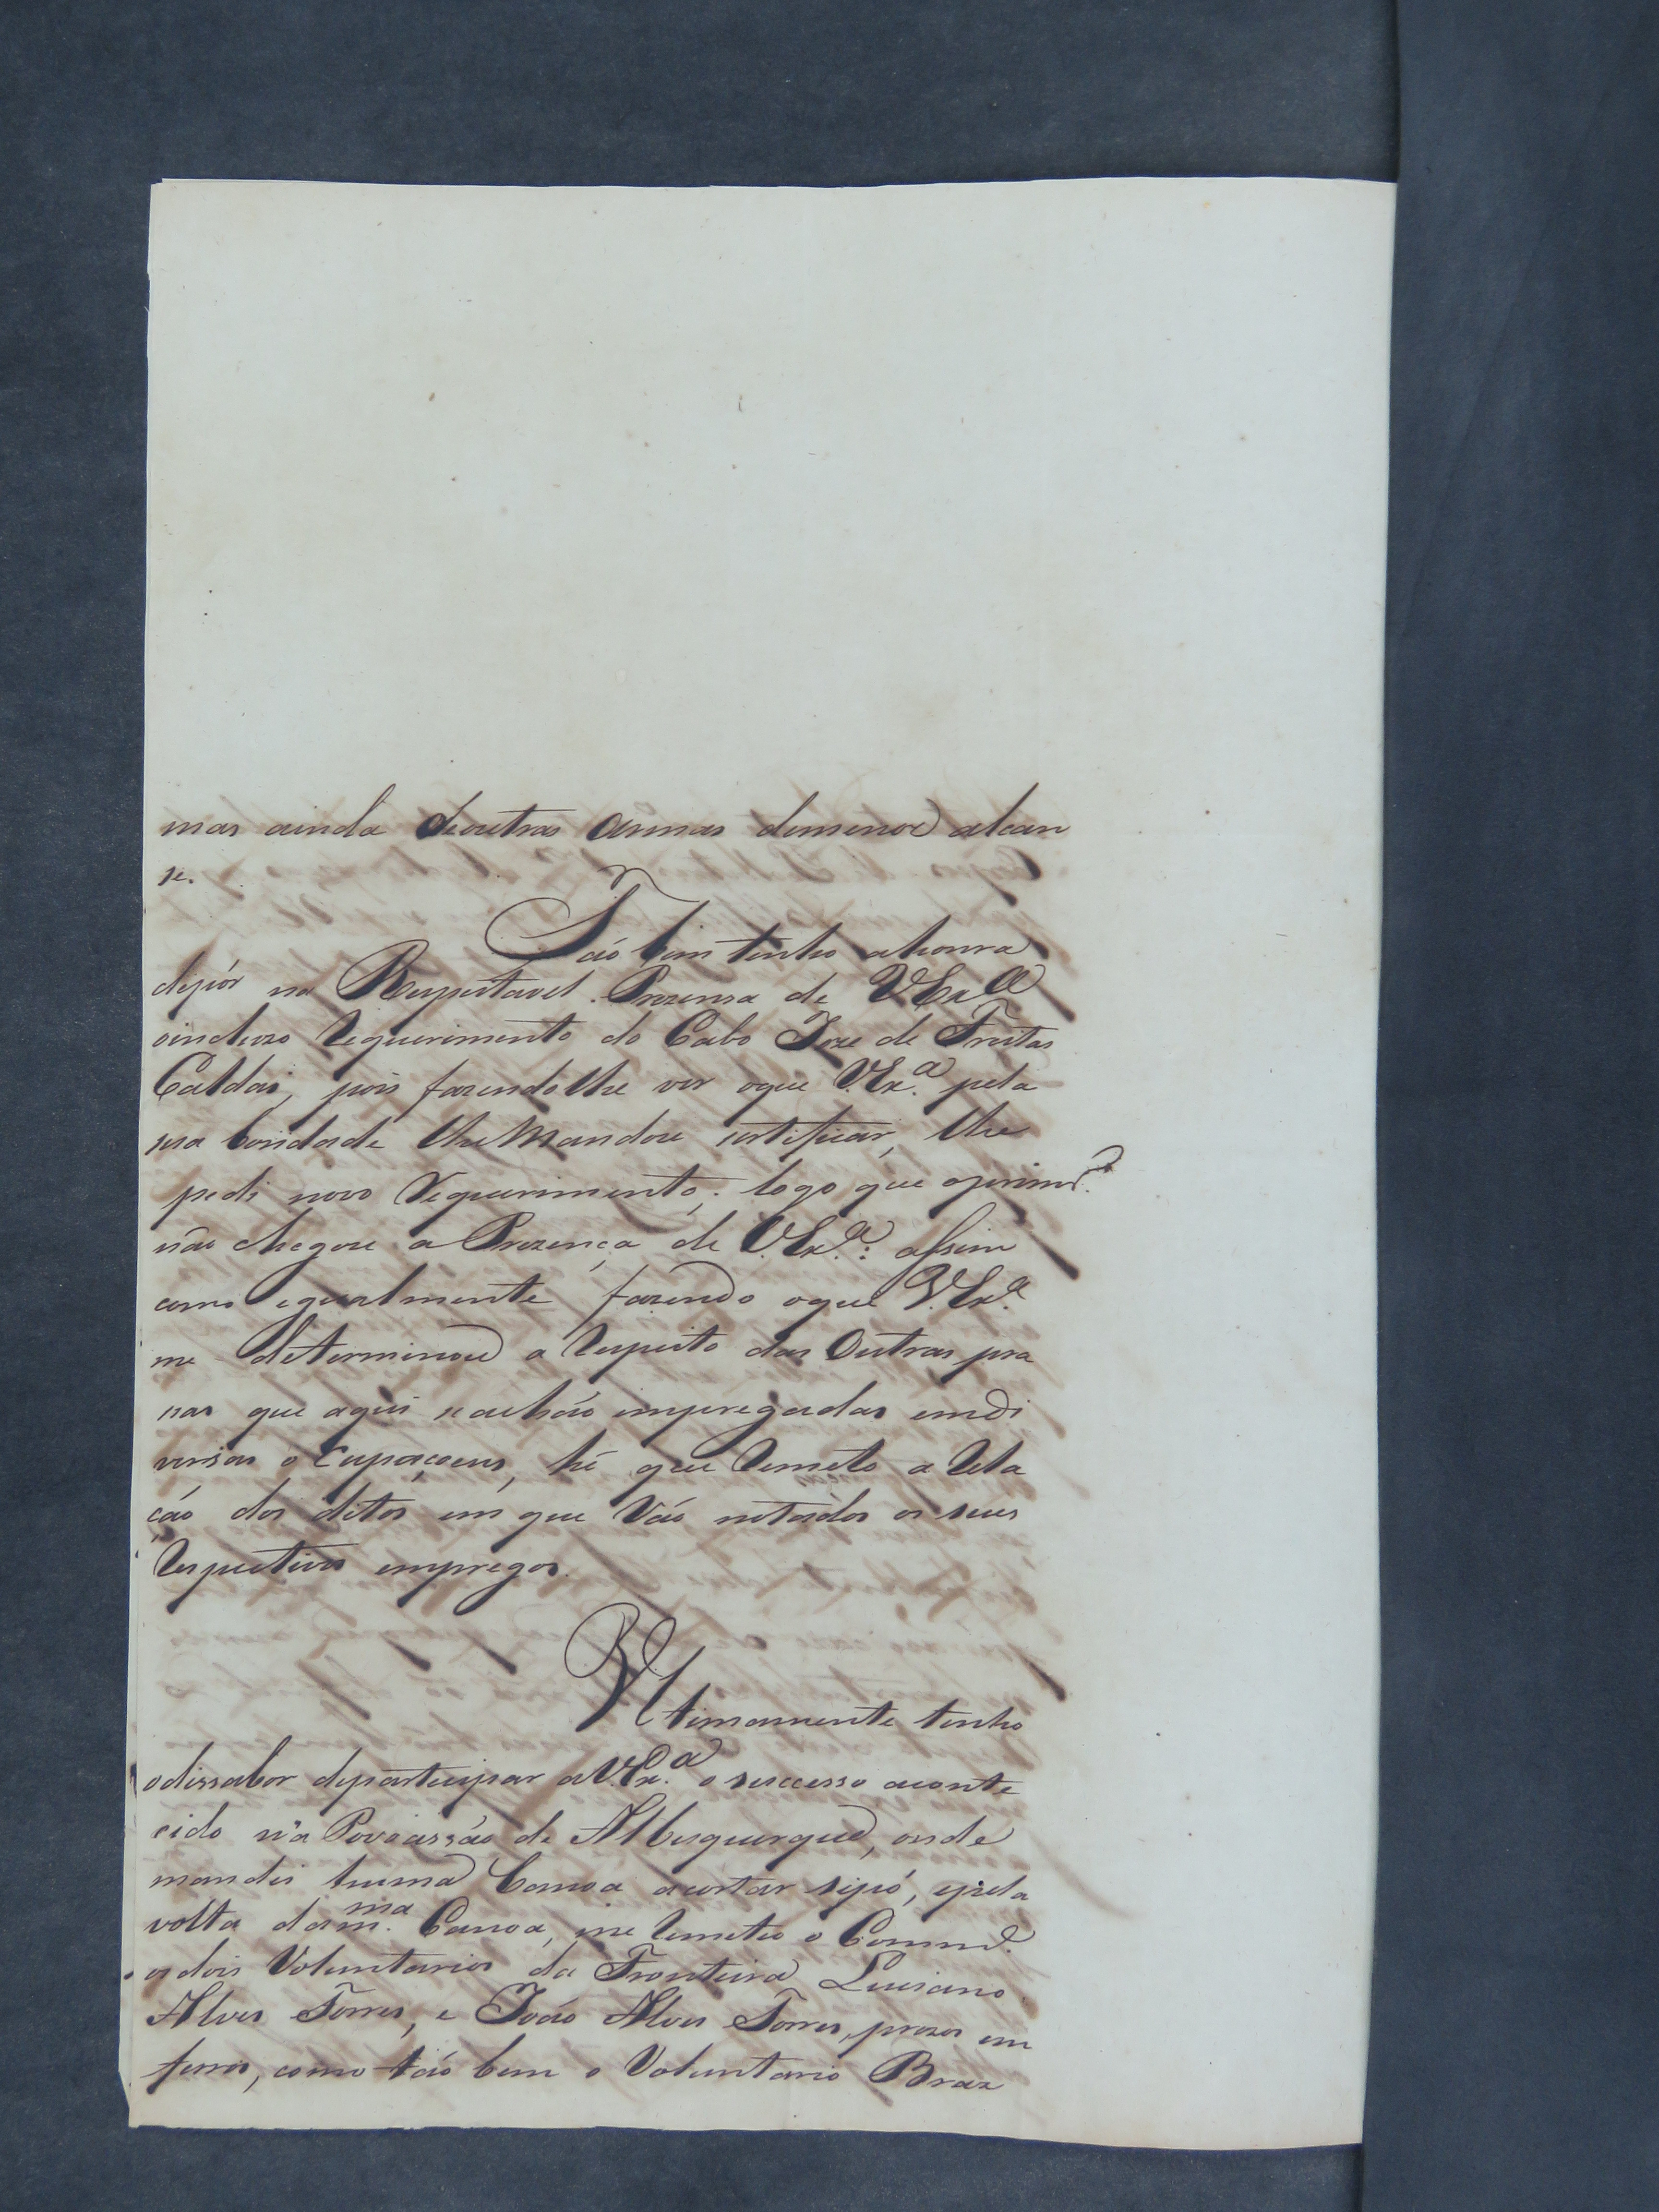 mas ainda deoutras Armas demenor alcan
se.
Taõ bem tenho ahonra
depór na Respeitavel Prezensa de VExª
oincluzo Requerimento do Cabo Joze de Freitas
Caldas, pois fazendolhe ver oque V.Exª pela
sua bondade lhe Mandou sertificar, lhe
pedi novo Requerimento, logo que oprimrº
não chegou a Prezença de V.Exª: assim
como egualmente fazendo oque V.Exª
me determinou a Respeito das Outras pra
sas que aqui seachaõ empregadas emdi
versas oCupaçoens, hé que Remeto a Rela
çaõ dos ditos em que Vaõ notados os seus
Respectivos empregos.
Ultimamente tenho
odissabor departicipar aV.Exª o successo aconte
cido n'a Povoassaõ de Albuquerque, onde
mandei huma Canoa acortar sipó, epela
volta dam.ma Canoa, me Remeteo o Commde
os dois Voluntarios da Fronteira Luciano
Alves Torres, e Joaõ Alves Torres, prezos em
ferros, como taõ bem o Voluntario Braz